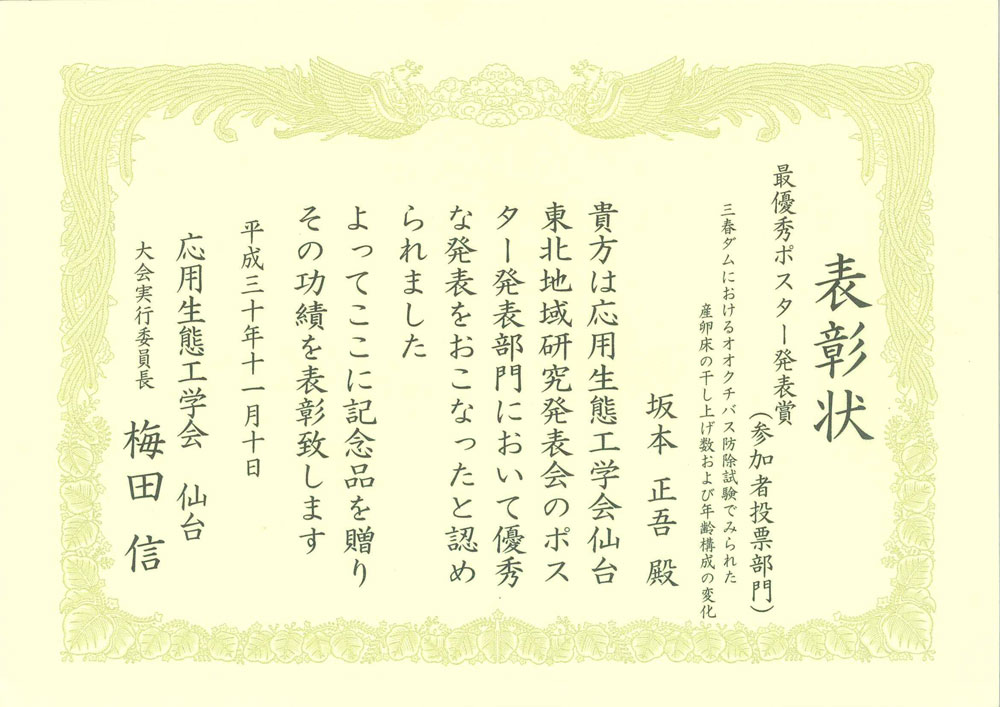 表彰状
最優秀ポスター発表賞
（参加者投票部門）
三春ダムにおけるオオクチバス防除試験でみられた
産卵床の干し上げ数および年齢構成の変化
坂本 正吾 殿
貴方は応用生態工学会仙台
東北地域研究発表会のポス
ター発表部門において優秀
な発表をおこなったと認め
られました
よってここに記念品を贈り
その功績を表彰致します
平成三十年十一月十日
応用生態工学会 仙台
大会実行委員長 梅田 信